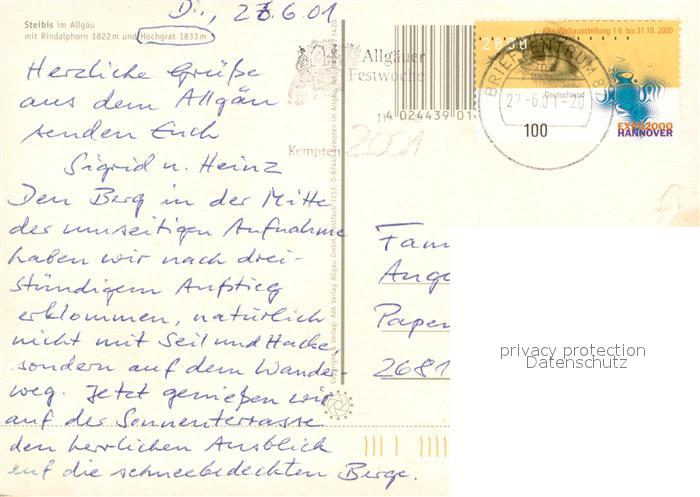 Di., 26.6.01
Steibis im Allgäu
mit Rindalphorn 1822 m und Hochgrat 1833 m
Herzliche Grüße
aus dem Allgäu
senden Euch
Sigrid u. Heinz
Den Berg in der Mitte
der umseitigen Aufnahme
haben wir nach drei-
stündigem Aufstieg
erklommen, natürlich
nicht mit Seil und Hacke,
sondern auf dem Wander-
weg. Jetzt genießen wir
auf der Sonnenterrasse
den herrlichen Ausblick
auf die schneebedeckten Berge.
Allgäuer
Festwoche
Kempten 2001
4 024439 01
Die Weltausstellung 1.6. bis 31.10. 2000
BRIEFZENTRUM 8
27.-6.01-20
Deutschland
100
EXPO2000
HANNOVER
Fam
Ange
Papen
2681
privacy protection
Datenschutz